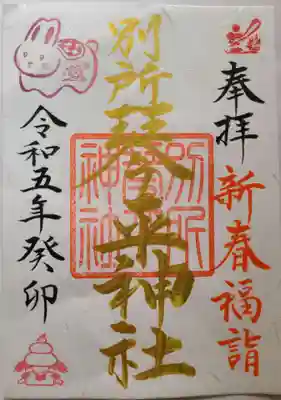 奉拝
新春福詣
別所琴平神社
別所
神社
令和五年癸卯